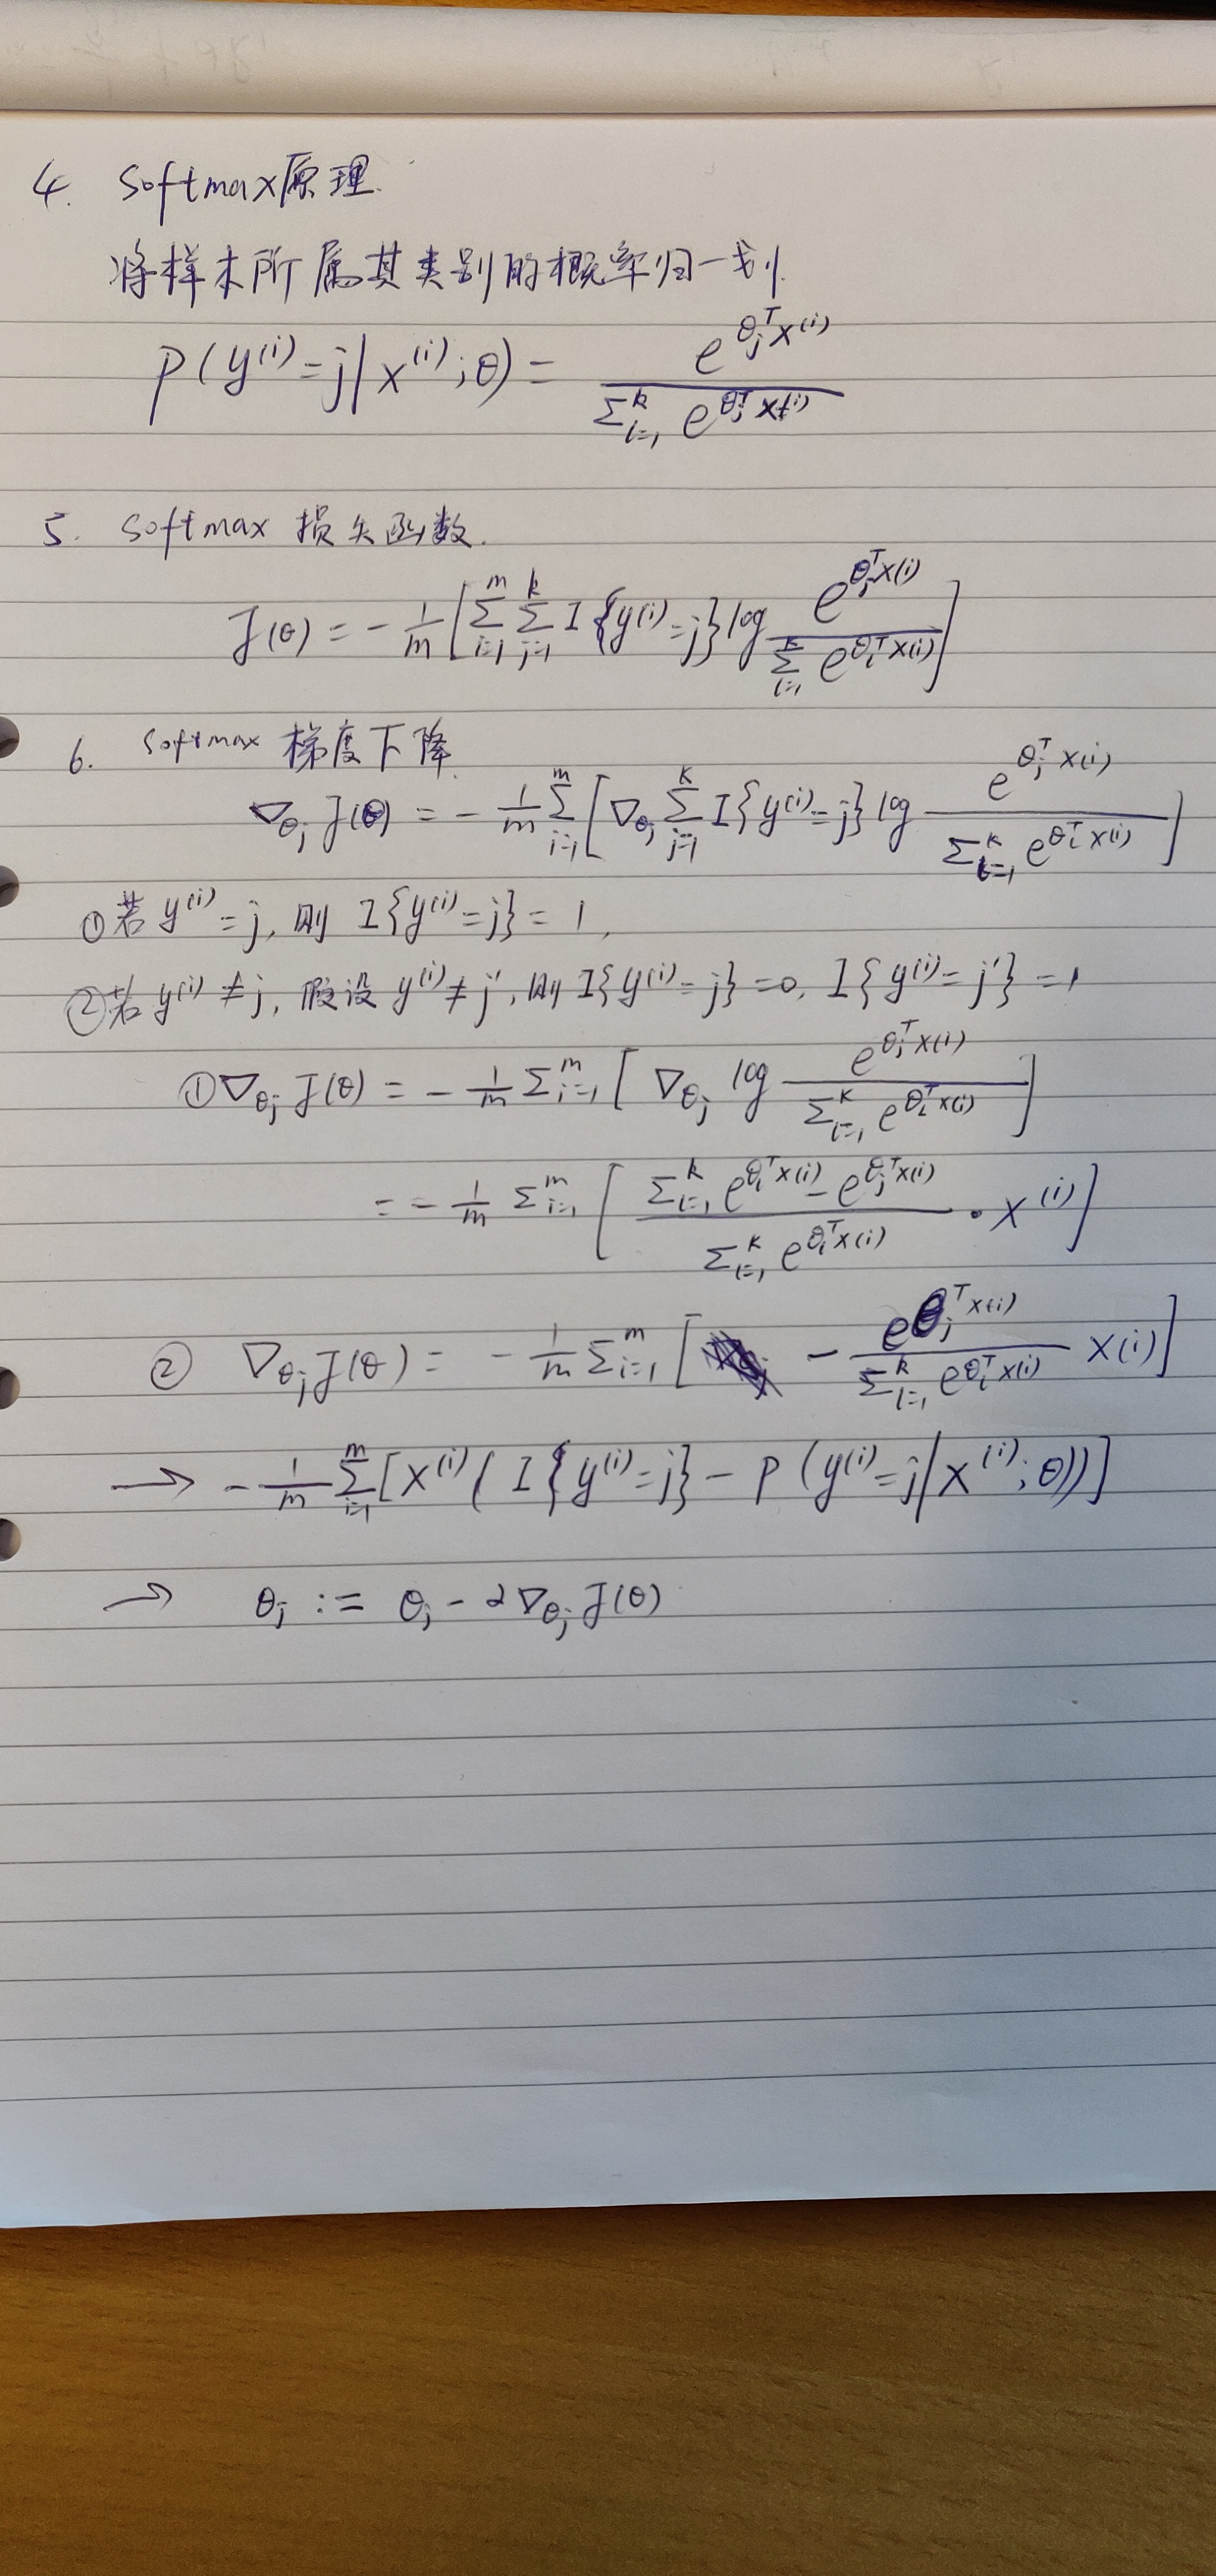 4. Softmax原理.
将样本所属其类别的概率归一划.
P(y⁽ⁱ⁾=j|x⁽ⁱ⁾;θ) = e^{θ_j^T x⁽ⁱ⁾} / Σ_{l=1}^k e^{θ_j^T x(i)}
5. Softmax 损失函数.
J(θ) = -1/m [Σ_{i=1}^m Σ_{j=1}^k I{y⁽ⁱ⁾=j} log e^{θ_j^T x(i)} / Σ_{l=1}^k e^{θ_l^T x(i)}]
6. Softmax 梯度下降.
∇_{θ_j} J(θ) = -1/m Σ_{i=1}^m [∇_{θ_j} Σ_{j=1}^k I{y⁽ⁱ⁾=j} log e^{θ_j^T x(i)} / Σ_{l=1}^k e^{θ_l^T x(i)}]
①若 y⁽ⁱ⁾=j, 则 I{y⁽ⁱ⁾=j}=1,
②若 y⁽ⁱ⁾≠j, 假设 y⁽ⁱ⁾≠j', 则 I{y⁽ⁱ⁾=j}=0, I{y⁽ⁱ⁾=j'}=1
①∇_{θ_j} J(θ) = -1/m Σ_{i=1}^m [∇_{θ_j} log e^{θ_j^T x(i)} / Σ_{l=1}^k e^{θ_l^T x(i)}]
= -1/m Σ_{i=1}^m [(Σ_{l=1}^k e^{θ_l^T x(i)} - e^{θ_j^T x(i)}) / Σ_{l=1}^k e^{θ_l^T x(i)} · x⁽ⁱ⁾]
② ∇_{θ_j} J(θ) = -1/m Σ_{i=1}^m [- e^{θ_j^T x(i)} / Σ_{l=1}^k e^{θ_l^T x(i)} x(i)]
→ -1/m Σ_{i=1}^m [x⁽ⁱ⁾(I{y⁽ⁱ⁾=j} - P(y⁽ⁱ⁾=j|x⁽ⁱ⁾;θ))]
→ θ_j := θ_j - α∇_{θ_j} J(θ)